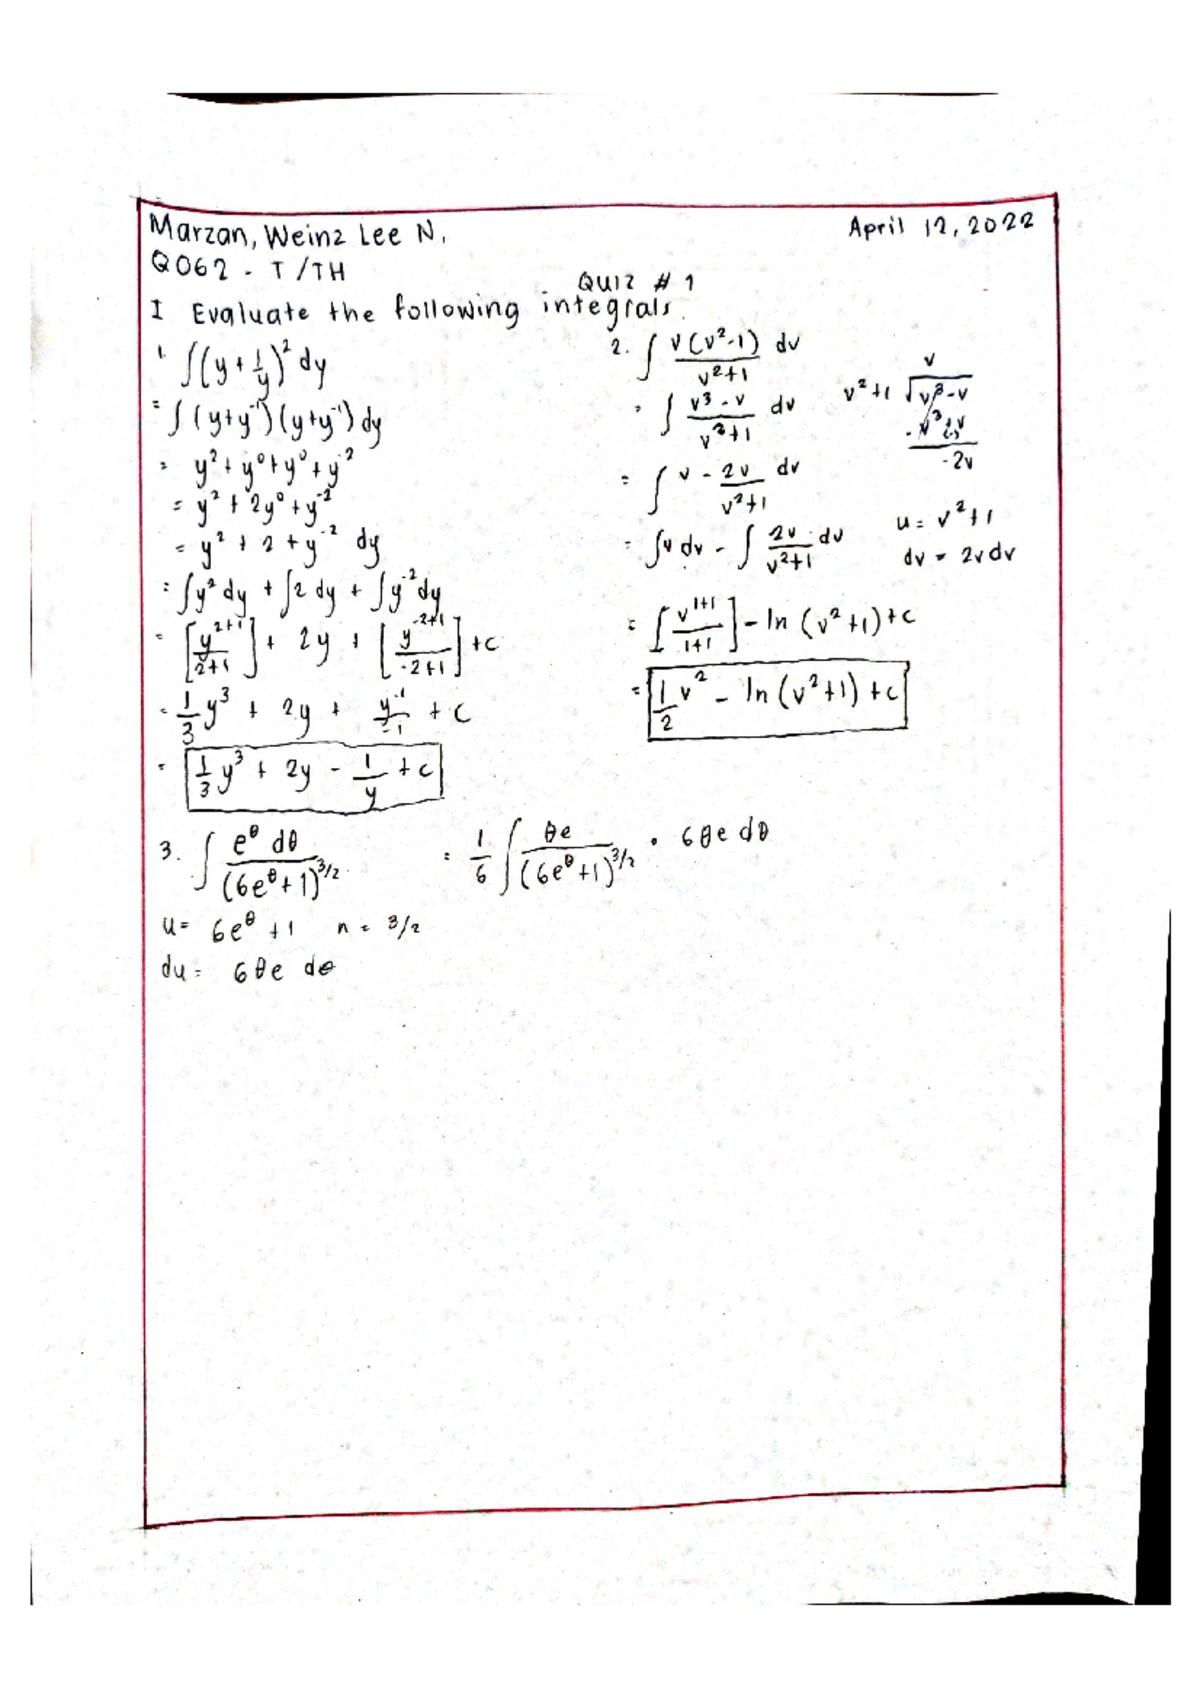 Marzan, Weinz Lee N.
April 12, 2022
Q062 - T/TH
QUIZ # 1
I Evaluate the following integrals.
1. ∫(y + 1/y)² dy
= ∫(y+y⁻¹)(y+y⁻¹) dy
= y² + y⁰ + y⁰ + y⁻²
= y² + 2y⁰ + y⁻²
= y² + 2 + y⁻² dy
= ∫y² dy + ∫2 dy + ∫y⁻² dy
= [y²⁺¹/2+1] + 2y + [y⁻²⁺¹/-2+1] + c
= 1/3 y³ + 2y + y⁻¹/-1 + c
= 1/3 y³ + 2y - 1/y + c
2. ∫ v(v²-1)/v²+1 dv
= ∫ v³-v/v²+1 dv
= ∫ v - 2v/v²+1 dv
= ∫v dv - ∫ 2v/v²+1 dv
= [v¹⁺¹/1+1] - ln (v²+1) + c
= 1/2 v² - ln (v²+1) + c
v
v²+1 √v³-v
-2v
u = v²+1
dv = 2v dv
3. ∫ e^θ dθ/(6e^θ+1)^3/2
= 1/6 ∫ θe/(6e^θ+1)^3/2 · 6θe dθ
u = 6e^θ + 1 n = 3/2
du = 6θe dθ